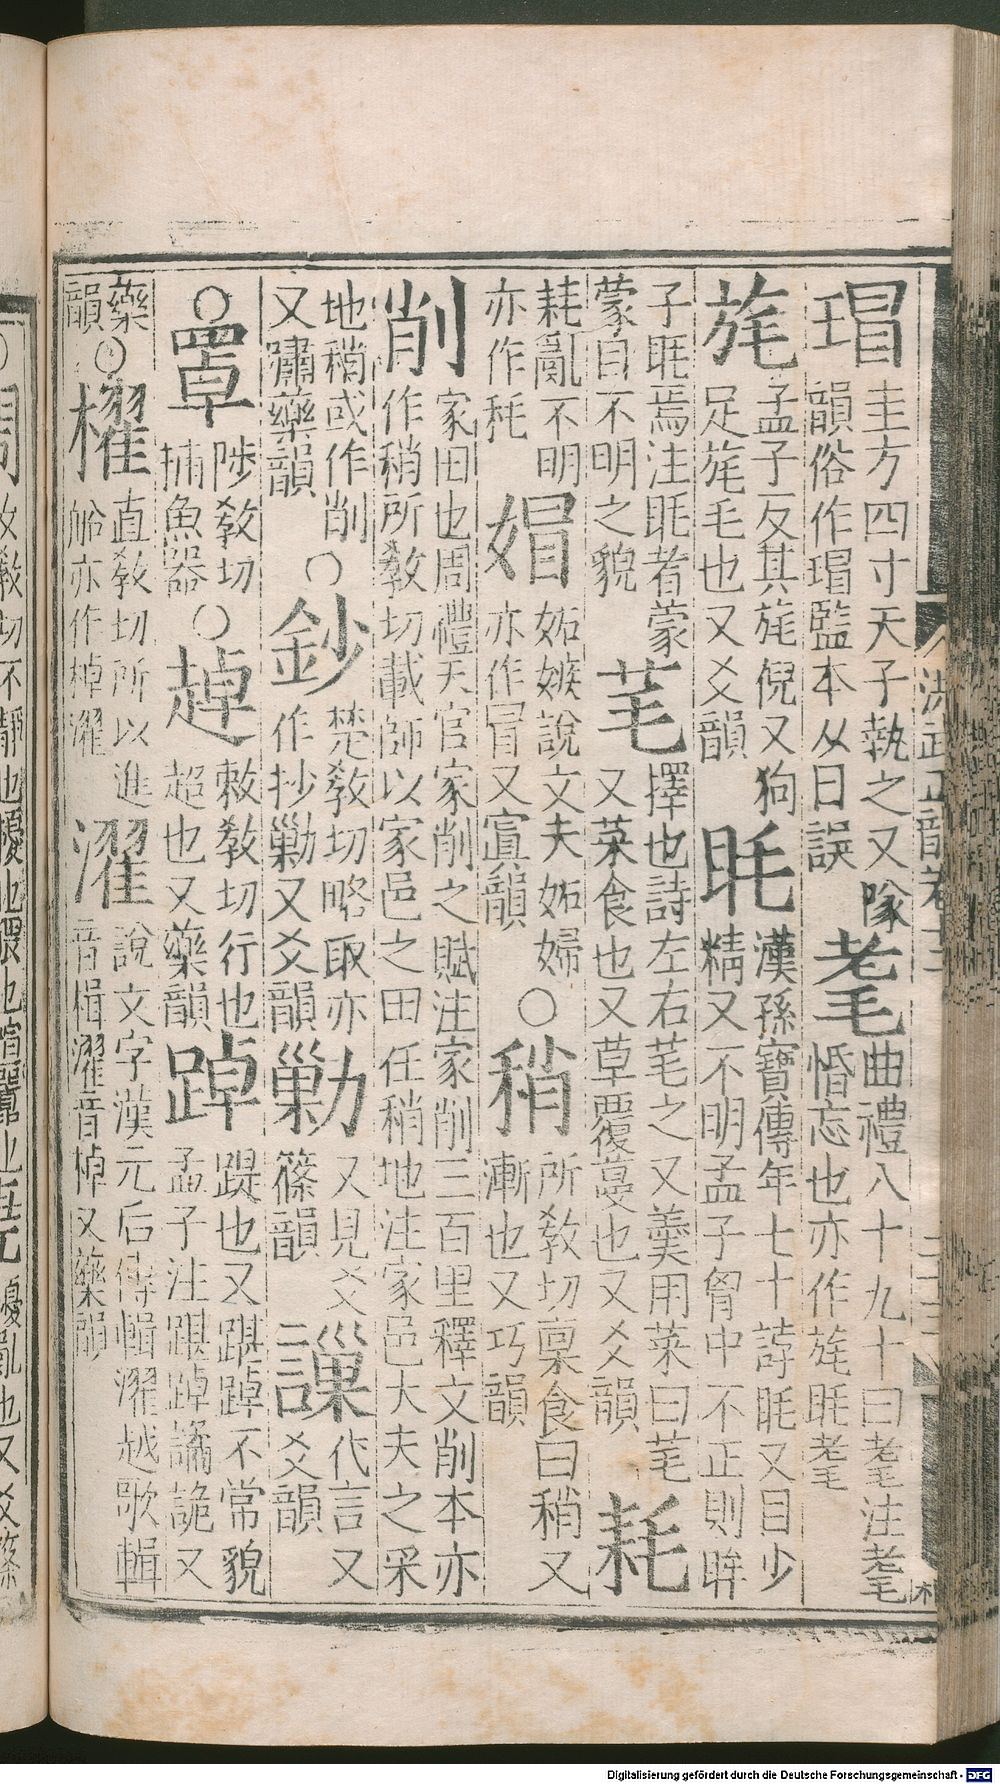 洪武正韻卷十三
瑁 圭方四寸天子執之又隊
韻俗作瑁監本从日誤
耄 曲禮八十九十曰耄注耄
惛忘也亦作旄眊耄
旄 孟子反其旄倪又狗
足旄毛也又爻韻
眊 漢孫寶傳年七十誖眊又目少
精又不明孟子胷中不正則眸
子眊焉注眊者蒙
蒙目不明之貌
芼 擇也詩左右芼之又羹用菜曰芼
又菜食也又草覆蔓也又爻韻
耗
耗亂不明
亦作秏
媢 妬嫉說文夫妬婦
亦作冒又寘韻
○稍 所敎切稟食曰稍又
漸也又巧韻
削 家田也周禮天官家削之賦注家削三百里釋文削本亦
作稍所敎切載師以家邑之田任稍地注家邑大夫之采
地稍或作削
又嘯藥韻
○鈔 楚敎切略取亦
作抄勦又爻韻
勦 又見爻
篠韻二
䜈 代言又
爻韻
○罩 陟敎切
捕魚器
○趠 敕敎切行也
超也又藥韻
踔 踶也又踑踔不常貌
孟子注踑踔譎詭又
藥
韻
○櫂 直敎切所以進
舲亦作棹濯
濯 說文字漢元后傳輯濯越歌輯
音楫濯音棹又藥韻
Digitalisierung gefördert durch die Deutsche Forschungsgemeinschaft - DFG